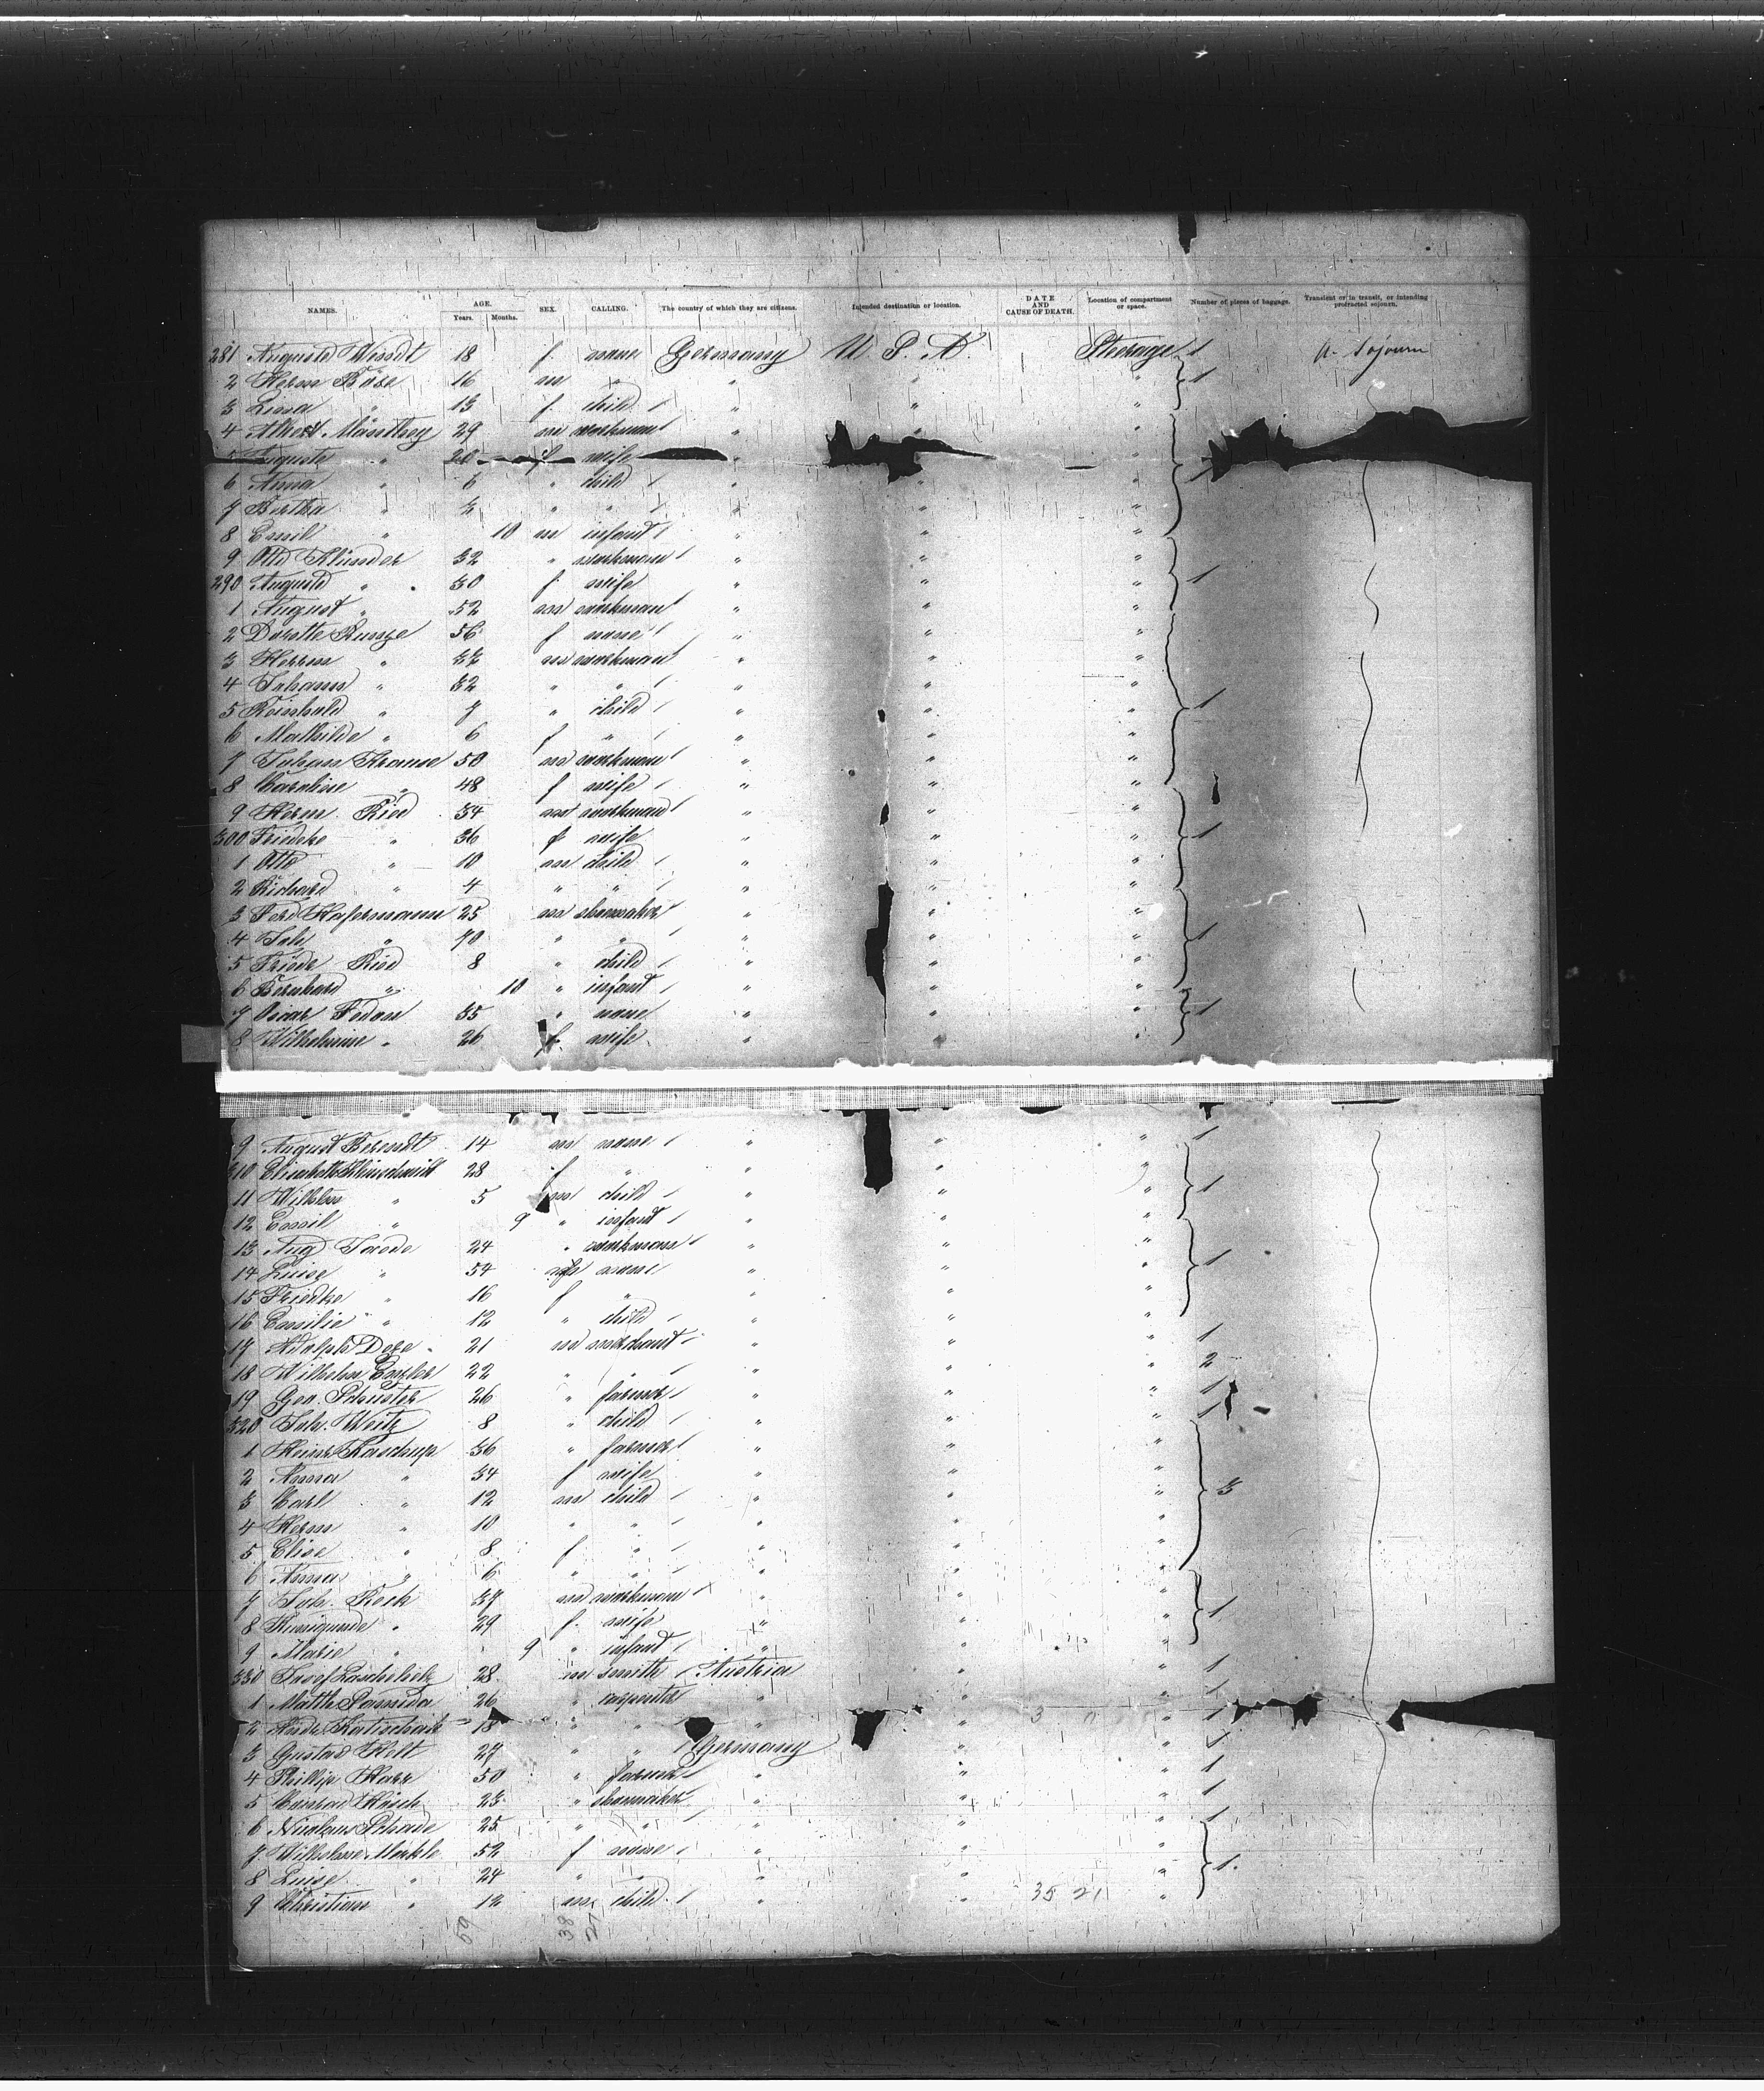 NAMES. AGE. Years. Months. SEX. CALLING. The country of which they are citizens. Intended destination or location. DATE AND CAUSE OF DEATH. Location of compartment or space. Number of pieces of baggage. Transient or in transit, or intending protracted sojourn.
281 Auguste Wendt 18 f. none Germany U. S. A. Steerage 1 u. Sojourn
2 Herm Böse 16 m " " " " 1
3 Lina " 13 f. child " " "
4 Albert Manthey 29 m workman " " "
5 Auguste " 20 f wife "
6 Anna " 6 " child " " " 1
7 Bertha " 3 " " " " "
8 Emil " 10 m infant " " "
9 Otto Klünder 32 " workman " " "
290 Auguste " 30 f. wife " " " 1
1 August " 52 m workman " " "
2 Dorothe Runge 56 f none " " "
3 Herm " 33 m workman " " "
4 Johann " 32 " " " " "
5 Reinhold " 7 " child " " " 1
6 Mathilde " 6 f " " " "
7 Johann Krause 50 m workman " " "
8 Caroline " 48 f wife " " "
9 Herm. Ried 34 m workman " " "
300 Friedke " 36 f wife " " " 1
1 Otto " 10 m child " " "
2 Richard " 4 " " " " "
3 Ferd Hafermann 25 m shoemaker " " "
4 Joh " 70 " " " " " 1
5 Friedr Ried 8 " child " " "
6 Bernhard " 10 " infant " " "
7 Oscar Fedan 35 " none " " " 1
8 Wilhelmine " 26 f. wife " " "
9 August Berendt 14 m none " " " 1
310 Elisabeth Kleinschmidt 28 f " " " "
11 Wilhelm " 5 m child " " " 1
12 Emil " 9 " infant " " "
13 Aug Taede 24 " workman " " "
14 Luise " 54 f none " " " 1
15 Friedke " 16 f " " " "
16 Emilie " 12 " child " " "
17 Adolph Dege 21 m merchant " " " 1
18 Wilhelm Engler 22 " " " " " 2
19 Geo. Schuster 26 " farmer " " " 1
320 Joh. Weitz 8 " child " " " 1
1 Heinr Kaschup 36 " farmer " " "
2 Anna " 34 f wife " " "
3 Carl " 12 m child " " " 3
4 Herm " 10 " " " " "
5 Elise " 8 f " " " "
6 Anna " 6 " " " " "
7 Joh. Keck 37 m workman " " "
8 Kunigunde " 29 f. wife " " " 1
9 Marie " 9 " infant " " "
330 Josef 28 m smith Austria " " 1
1 Matth 26 " carpenter " " " 1
2 18 " " " " " 1
3 Gustav Helt 27 " " Germany " " 1
4 Phillip Harr 50 " farmer " " " 1
5 Conrad Hirsch 23 " shoemaker " " " 1
6 Nicolaus Schade 25 " " " " " 1
7 Wilhelmine Merkle 52 f none " " "
8 Luise " 24 " " " " " 1.
9 Christian " 12 m. child " " "
35 21
59 38 21